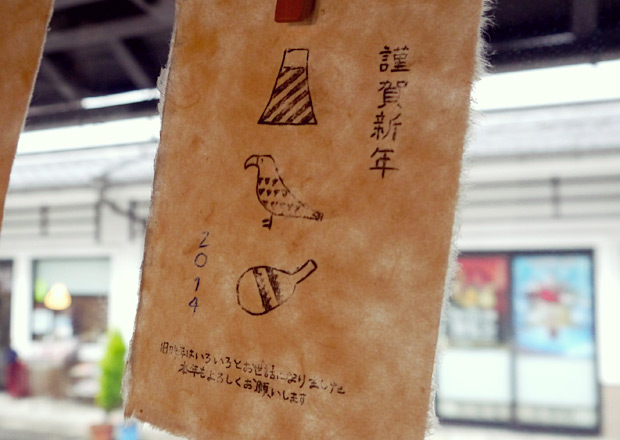 謹賀新年
2014
旧年中はいろいろとお世話になりました
本年もよろしくお願いします